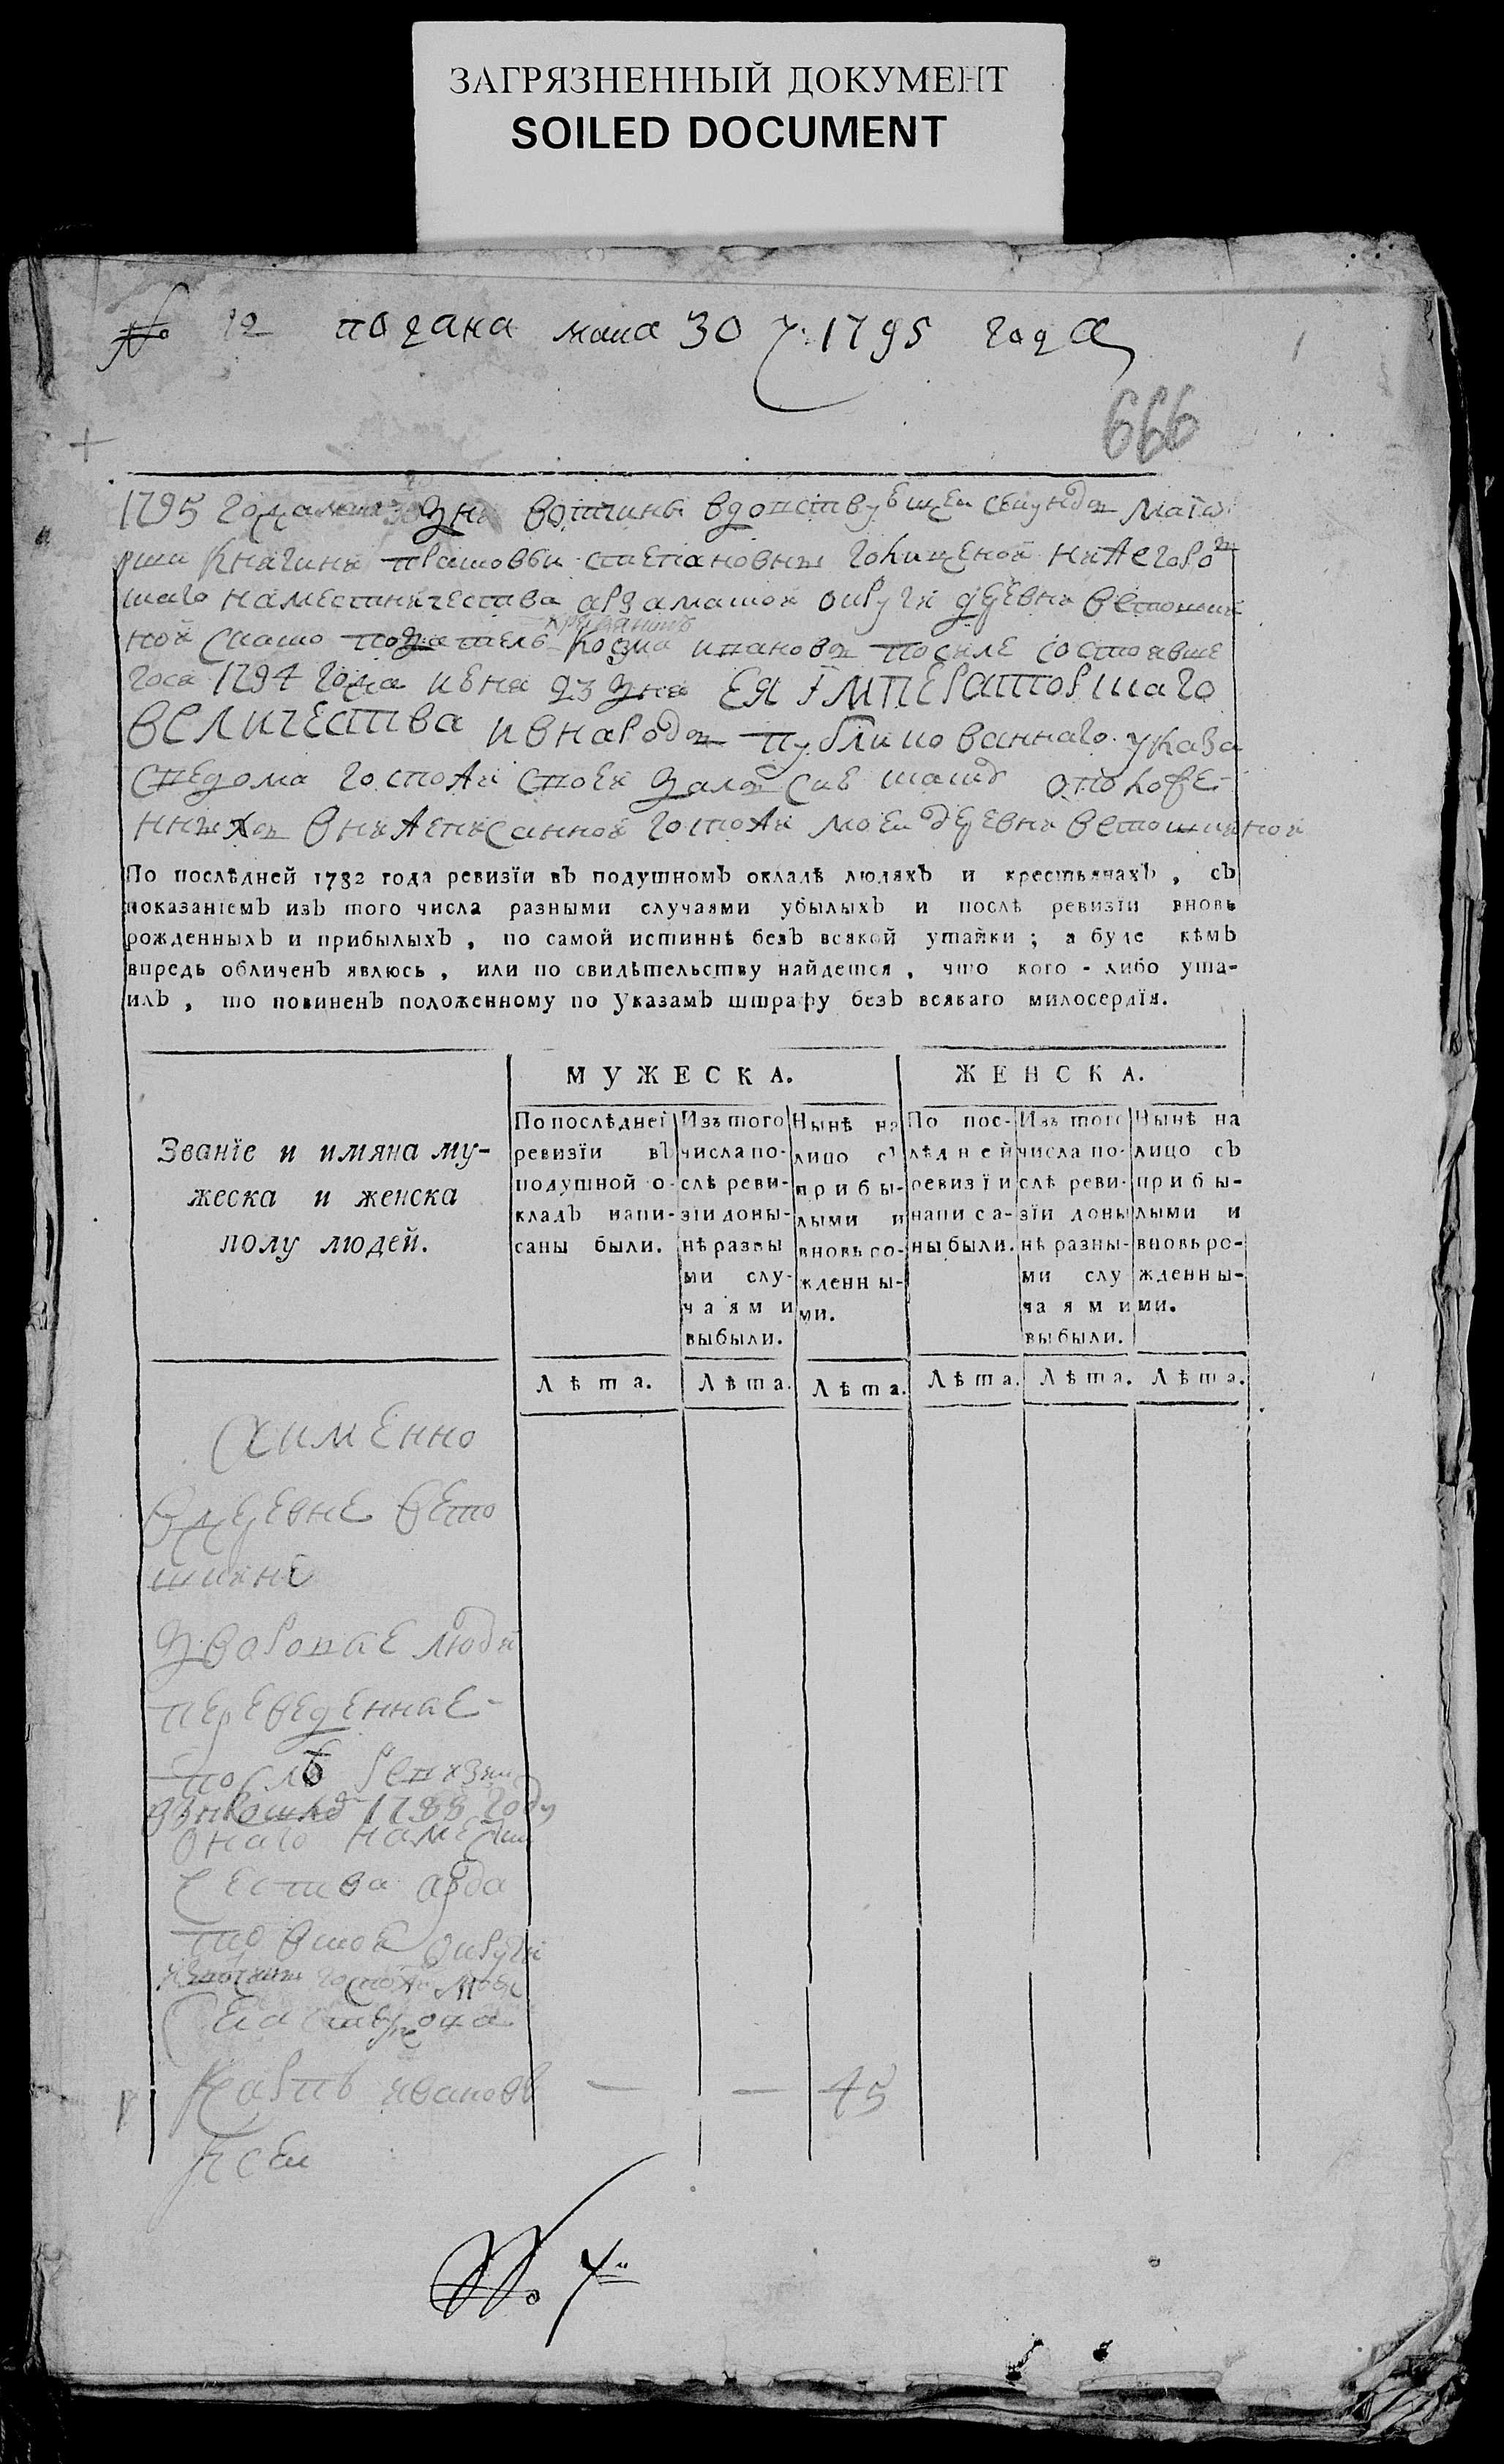 ЗАГРЯЗНЕННЫЙ ДОКУМЕНТ
SOILED DOCUMENT
№ 12 подана маиа 30 ч: 1795 года
666
1795 года маиа 30 дня вотчины вдовствующеи секундъ маио
рши княгини степановны голицыной нижегоро
цкаго наместничества арзамаской округи деревни ветошки
ной староста крестьянинъ Козма ивановъ после состоявше
гося 1794 года июня 23 дня ЕЯ IМПЕРАТОРскаго
ВЕЛИЧЕСТВА и в народъ публикованнаго указа
сведома госпожи своей далъ сию скаску о положе
нныхъ в нижеписанной госпожи моей деревни ветошкиной
По послѣдней 1782 года ревизїи въ подушномъ окладѣ людяхъ и крестьянахъ, съ
показанїемъ изъ того числа разными случаями убылыхъ и послѣ ревизїи вновь
рожденныхъ и прибылыхъ, по самой истиннѣ безъ всякой утайки; а буде кѣмъ
впредь обличенъ явлюсь, или по свидѣтельству найдется, что кого-либо ута-
илъ, то повиненъ положенному по Указамъ штрафу безъ всякаго милосердїя.
Званїе и имяна му-
жеска и женска
полу людей.
МУЖЕСКА.
По послѣдней
ревизїи въ
подушной о-
кладъ напи-
саны были.
Лѣта.
Изъ того
числа по-
слѣ реви-
зїи доны-
нѣ разны
ми слу-
чаями
выбыли.
Лѣта.
Нынѣ на
лицо съ
прибы-
лыми и
вновь ро-
жденны-
ми.
Лѣта.
ЖЕНСКА.
По пос-
лѣдней
ревизїи
написа-
ны были.
Лѣта.
Изъ того
числа по-
слѣ реви-
зїи доны
нѣ разны-
ми слу
чаями
выбыли.
Лѣта.
Нынѣ на
лицо съ
прибы-
лыми и
вновь ро-
жденны-
ми.
Лѣта.
а именно
в деревне вето
шкине
дворовые люди
переведенные
после ревизии
1788 году
онаго намесни
чества арда
товской округи
госпожи моей
села
Карпъ ивановъ — — 45
№